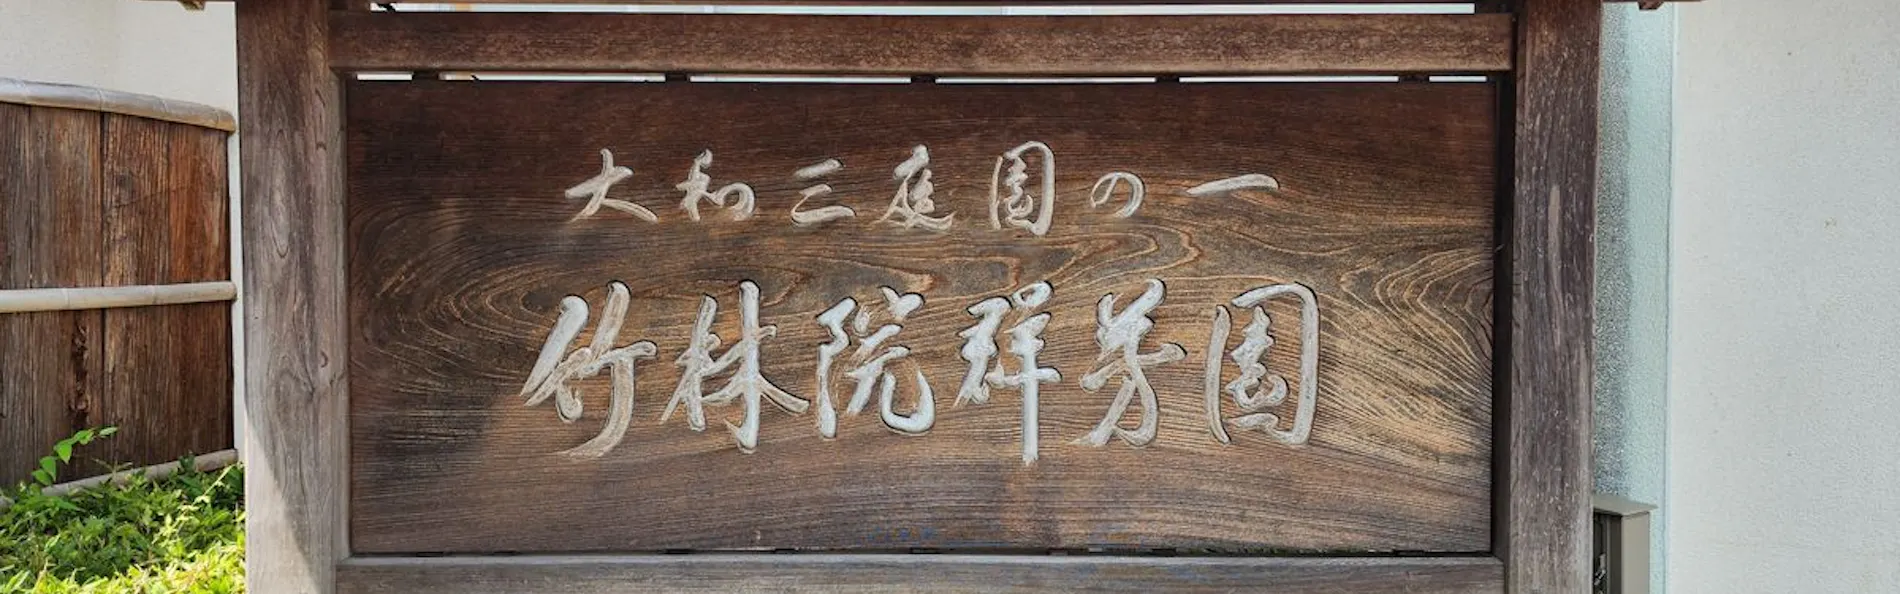 大和三庭園の一
竹林院群芳園